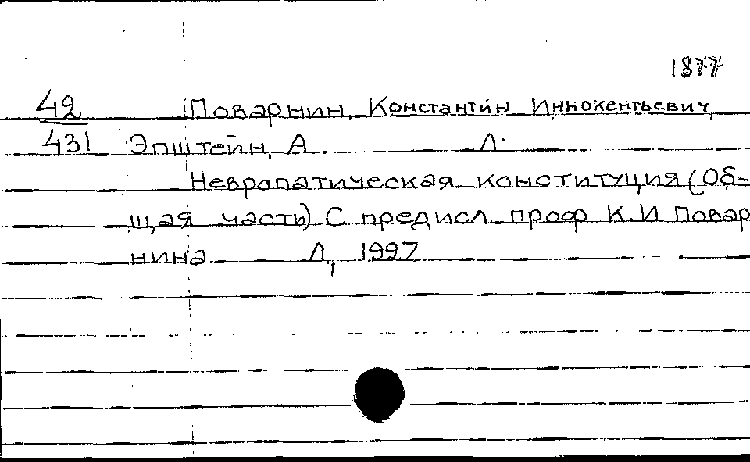 1877
42 Поварнин, Константин Иннокентьевич
431 Эпштейн, А. Л.
Невропатическая конституция (Об-
щая части) С предисл проф К.И Повар
нина Л, 1997